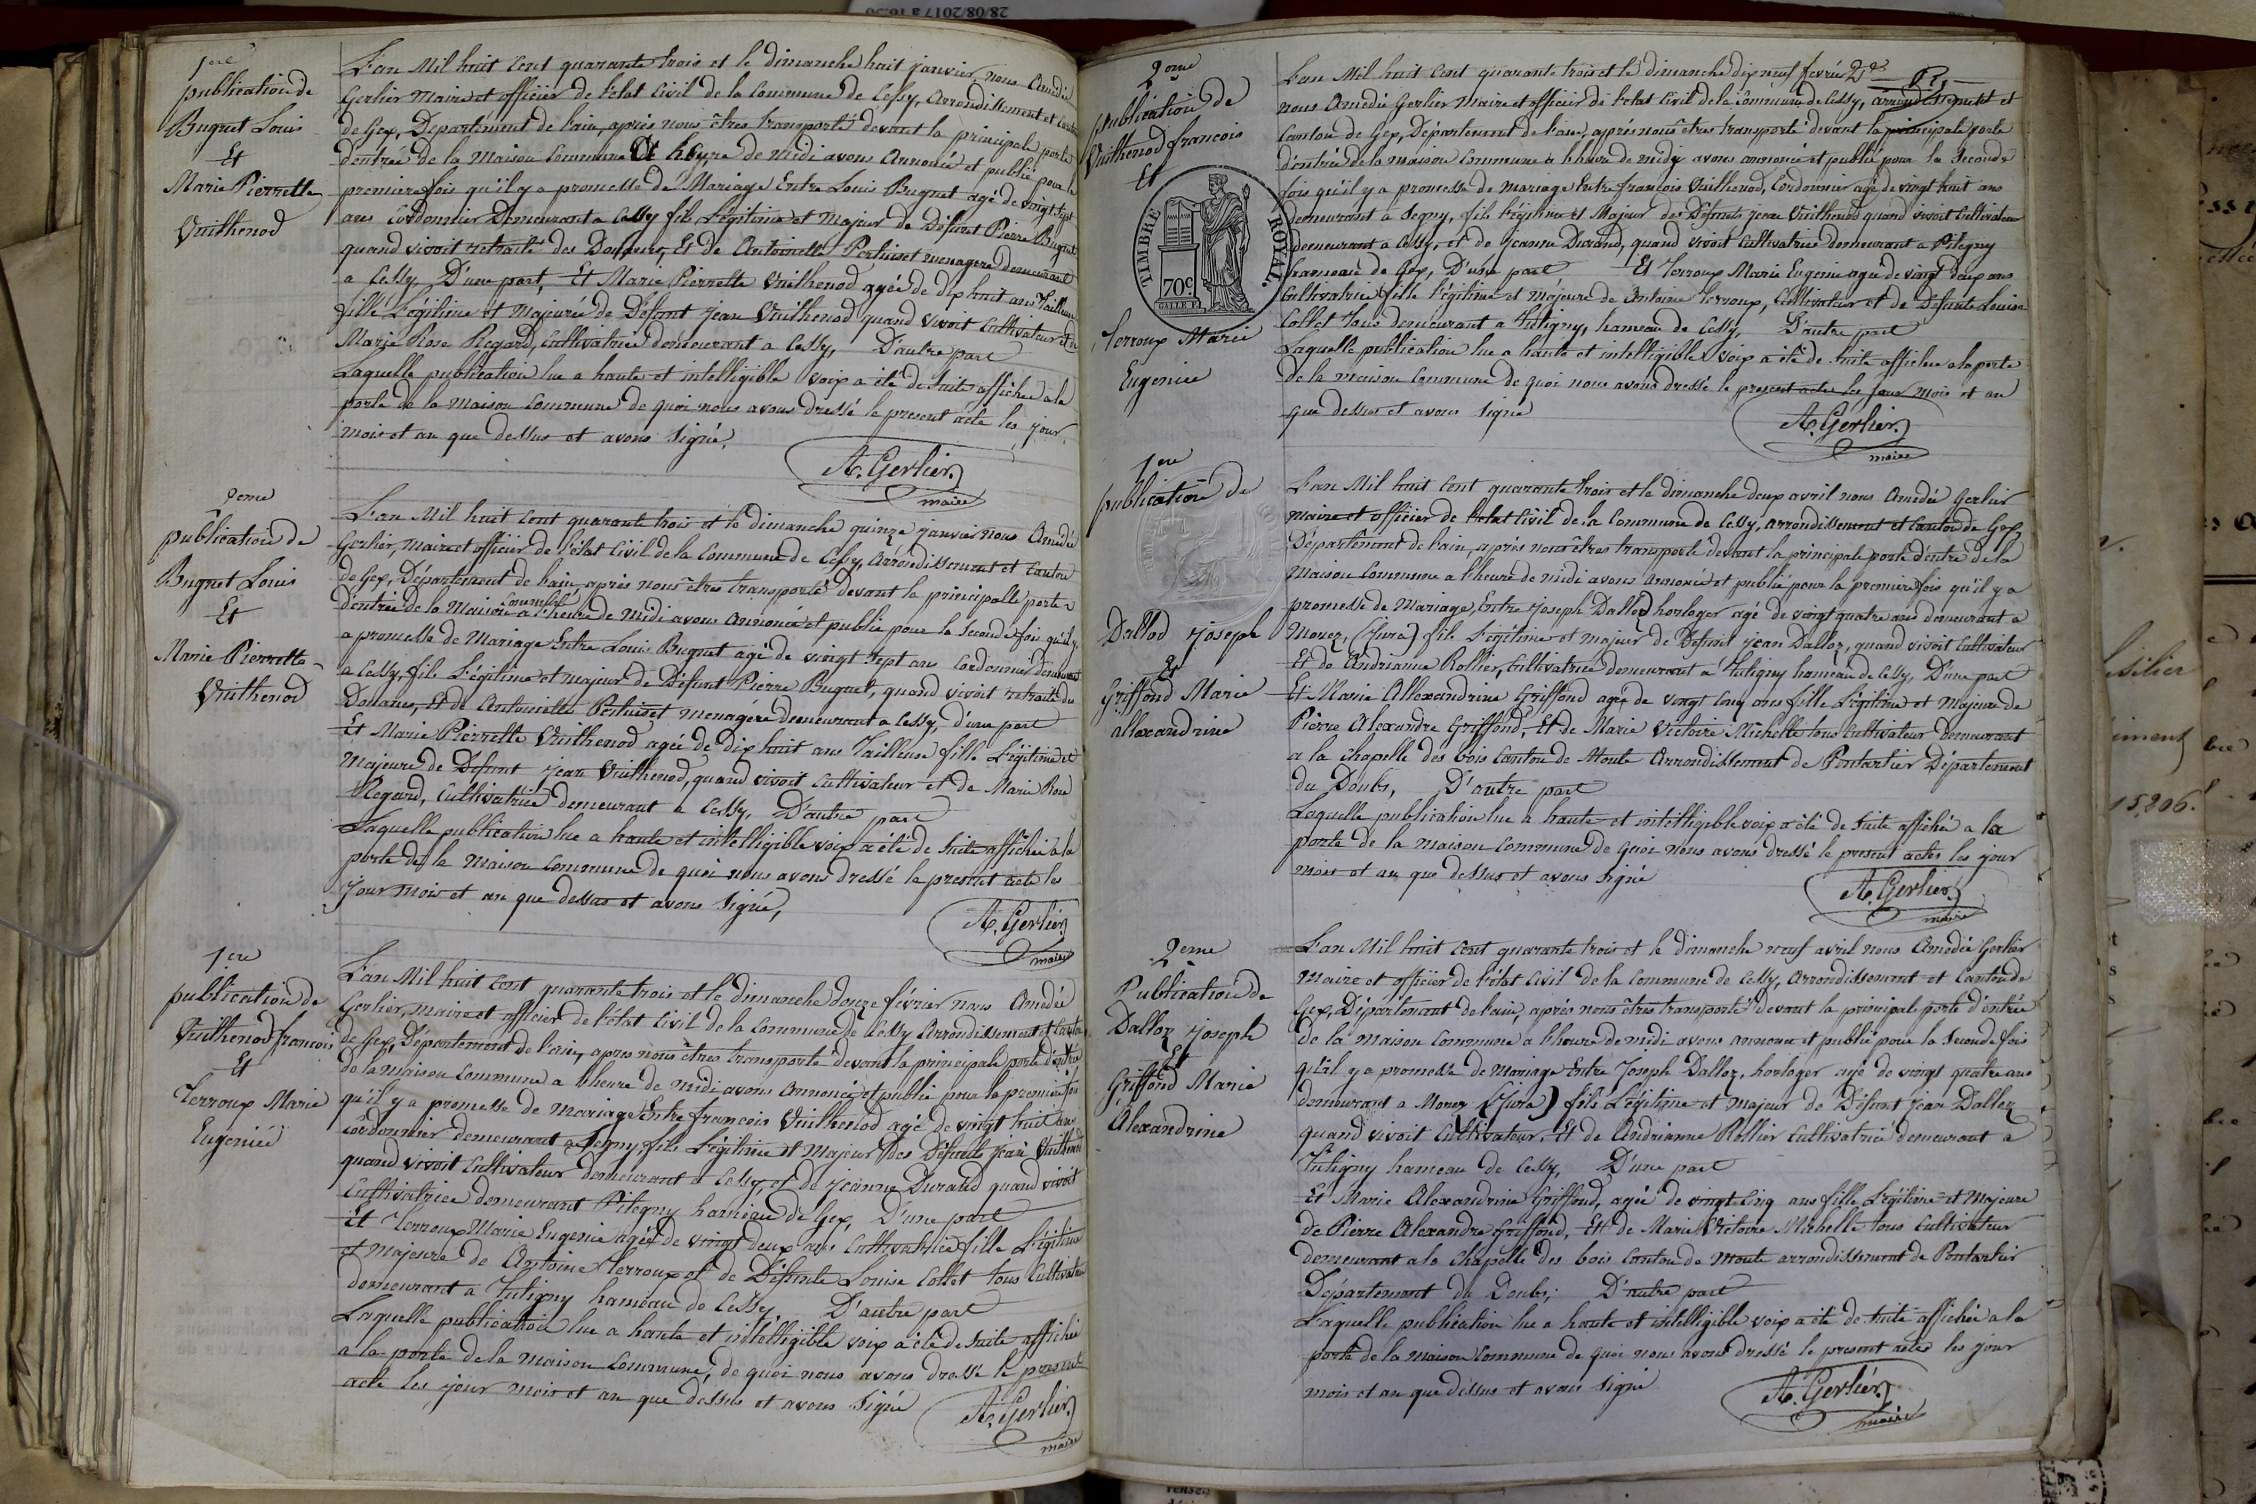 28/08/2017 à 16:30
1ere
publication de
Buguet Louis
Et
Marie Pierrette
Vuithenod
L'an Mil huit Cent quarante trois et le dimanche huit janvier, nous Amédée
Gerlier Maire et officier de l'état Civil de la Commune de Cessy, Arrondissement et Canton
de Gex, Departement de l'ain, après nous êtres transporté devant la principale porte
d'entrée de la Maison Commune a l'heure de midi avons Annoncé et publié pour la
premiere fois qu'il y a promesse de Mariage Entre Louis Buguet agé de vingt sept
ans Cordonnier Demeurant a Cessy fils Légitime et Majeur de Défunt Pierre Buguet
quand vivoit retraité des Douanes, Et de Antoinette Pertuiset menagere demeurant
a Cessy D'une part, Et Marie Pierrette Vuithenod agée de dix huit ans Tailleuse
fille Légitime et Majeure de Défunt jean Vuithenod quand vivoit Cultivateur et de
Marie Rose Regard, Cultivatrice demeurant a Cessy, D'autre part
Laquelle publication lue a haute et intelligible voix a été de suite affichée a la
porte de la Maison Commune de quoi nous avons dressé le present acte les jour
mois et an que dessus et avons signé,
A. Gerlier
maire
2eme
publication de
Buguet Louis
Et
Marie Pierrette
Vuithenod
L'an Mil huit Cent quarante trois et le dimanche quinze janvier nous Amédée
Gerlier, Maire et officier de l'état Civil de la Commune de Cessy, Arrondissement et Canton
de Gex, Département de l'ain, après nous êtres transporté devant la principalle porte
D'entrée de la Maison Commune a l'heure de midi avons Annoncé et publié pour la seconde fois qu'il y
a promesse de Mariage Entre Louis Buguet agé de vingt sept ans Cordonnier demeurant
a Cessy, fils Légitime et majeur de Défunt Pierre Buguet, quand vivoit retraité des
Douanes, Et de Antoinette Pertuiset menagére demeurant a Cessy, d'une part
Et Marie Pierrette Vuithenod agée de Dix huit ans Tailleuse fille Légitime et
Majeure de Defunt jean Vuithenod, quand vivoit Cultivateur et de Marie Rose
Regard, Cultivatrice demeurant a Cessy, D'autre part
Laquelle publication lue a haute et intelligible voix a été de suite affichée a la
porte de la Maison Commune de quoi nous avons dressé le present acte les
jour mois et an que dessus et avons signé,
A. Gerlier
maire
1ere
publication de
Vuithenod francois
Et
Terroux Marie
Eugeniée
L'an Mil huit Cent quarante trois et le dimanche douze février nous Amédée
Gerlier, maire et officier de l'état Civil de la Commune de Cessy Arrondissement et Canton
de Gex, Département de l'ain, apres nous êtres transporté devant la principale porte d'entrée
de la Maison Commune a l'heure de midi avons Annoncé et publié pour la premiere fois
qu'il y a promesse de Mariage Entre francois Vuithenod agé de vingt huit ans
cordonnier demeurant a Segny, fils Légitime et Majeur des Défunts jean Vuithenod
quand vivoit Cultivateur demeurant a Cessy, et de jeanne Durand quand vivoit
Cultivatrice demeurant Pitegny hameau de Gex, D'une part
Et Terroux Marie Eugenie agée de vingt deux ans Cultivatrice fille Légitime
et majeure de Antoine Terroux et de Défunte Louise Collet tous Cultivateur
demeurant a Tutigny hameau de Cessy D'autre part
Laquelle publication lue a haute et intelligible voix a été de suite affichée
a la porte de la Maison Commune, de quoi nous avons dressé le present
acte les jour mois et an que dessus et avons signé
A. Gerlier
maire
2eme
publication de
Vuithenod francois
Et
TIMBRE ROYAL.
70c
Terroux Marie
Eugeniee
L'an Mil huit Cent quarante trois et le dimanche dix neuf fevrier
nous Amédée Gerlier Maire et officier de l'état Civil de la Commune de Cessy, arrondissement et
Canton de Gex, Département de l'ain, après nous êtres transporté devant la principale porte
d'entrée de la maison Commune a l'heure de midy avons annoncé et publié pour la seconde
fois qu'il y a promesse de mariage Entre francois Vuithenod, Cordonnier agé de vingt huit ans
demeurant a Segny, fils Légitime et Majeur des Défunts jean Vuithenod quand vivoit Cultivateur
demeurant a Cessy, et de jeanne Durand, quand vivoit Cultivatrice demeurant a Pitegny
hameau de Gex, D'une part Et Terroux Marie Eugenie agée de vingt deux ans
Cultivatrice fille Légitime et majeure de Antoine Terroux, Cultivateur et de Défunte Louise
Collet tous demeurant a Tutigny, hameau de Cessy, D'autre part
Laquelle publication lue a haute et intelligible voix a été de suite affichée a la porte
de la maison Commune de quoi nous avons dressé le present acte les jour mois et an
que dessus et avons signé
A. Gerlier
maire
1ere
publication de
Dallod joseph
Et
Griffond Marie
allexandrine
L'an Mil huit Cent quarante trois et le dimanche deux avril nous Amédée Gerlier
maire et officier de l'état Civil de la Commune de Cessy, arrondissement et Canton de Gex
Département de l'ain, après nous êtres transporté devant la principale porte d'entré de la
Maison Commune a l'heure de midi avons Annoncé et publié pour la premiere fois qu'il y a
promesse de Mariage, Entre joseph Dalloz horloger agé de vingt quatre ans demeurant a
Mouez, (Jura) fils Légitime et majeur de Défunt jean Dalloz, quand vivoit Cultivateur
Et de Andrianne Rollier, Cultivatrice demeurant a Tutigny hameau de Cessy, D'une part
Et Marie Allexandrine Griffond agée de vingt Cinq ans fille Légitime et Majeure de
Pierre Alexandre Griffond, Et de Marie Victoire Michelle tous Cultivateur demeurant
a la Chapelle des bois Canton de Moute Arrondissement de Pontarlier Département
du Doubs, D'autre part
Laquelle publication lue a haute et intelligible voix a été de suite affichée a la
porte de la maison Commune de quoi nous avons dressé le present actes les jour
mois et an que dessus et avons signé
A. Gerlier
maire
2eme
Publication de
Dalloz joseph
Et
Griffond Marie
Alexandrine
L'an Mil huit Cent quarante trois et le dimanche neuf avril nous Amedée Gerlier
Maire et officier de l'état Civil de la Commune de Cessy, Arrondissement et Canton de
Gex, Département de l'ain, après nous êtres transporté devant la principale porte d'entrée
De la maison Commune a l'heure de midi avons annoncé et publié pour la seconde fois
qu'il y a promesse de Mariage Entre Joseph Dalloz, horloger agé de vingt quatre ans
demeurant a Mouez (Jura) fils Légitime et Majeur de Défunt jean Dalloz
quand vivoit Cultivateur, Et de Andrianne Rollier Cultivatrice demeurant a
Tutigny hameau de Cessy, D'une part
Et Marie Alexandrine Griffond, agée de vingt Cinq ans fille Légitime et Majeure
de Pierre Alexandre Griffond, Et de Marie Victoire Michelle tous Cultivateur
demeurant a la Chapelle des bois Canton de Moute arrondissement de Pontarlier
Département du Doubs; D'autre part
Laquelle publication lue a haute et intelligible voix a été de suite affichée a la
porte de la maison Commune de quoi nous avons dressé le present actes les jour
mois et an que dessus et avons signé
A. Gerlier
maire
15,206.